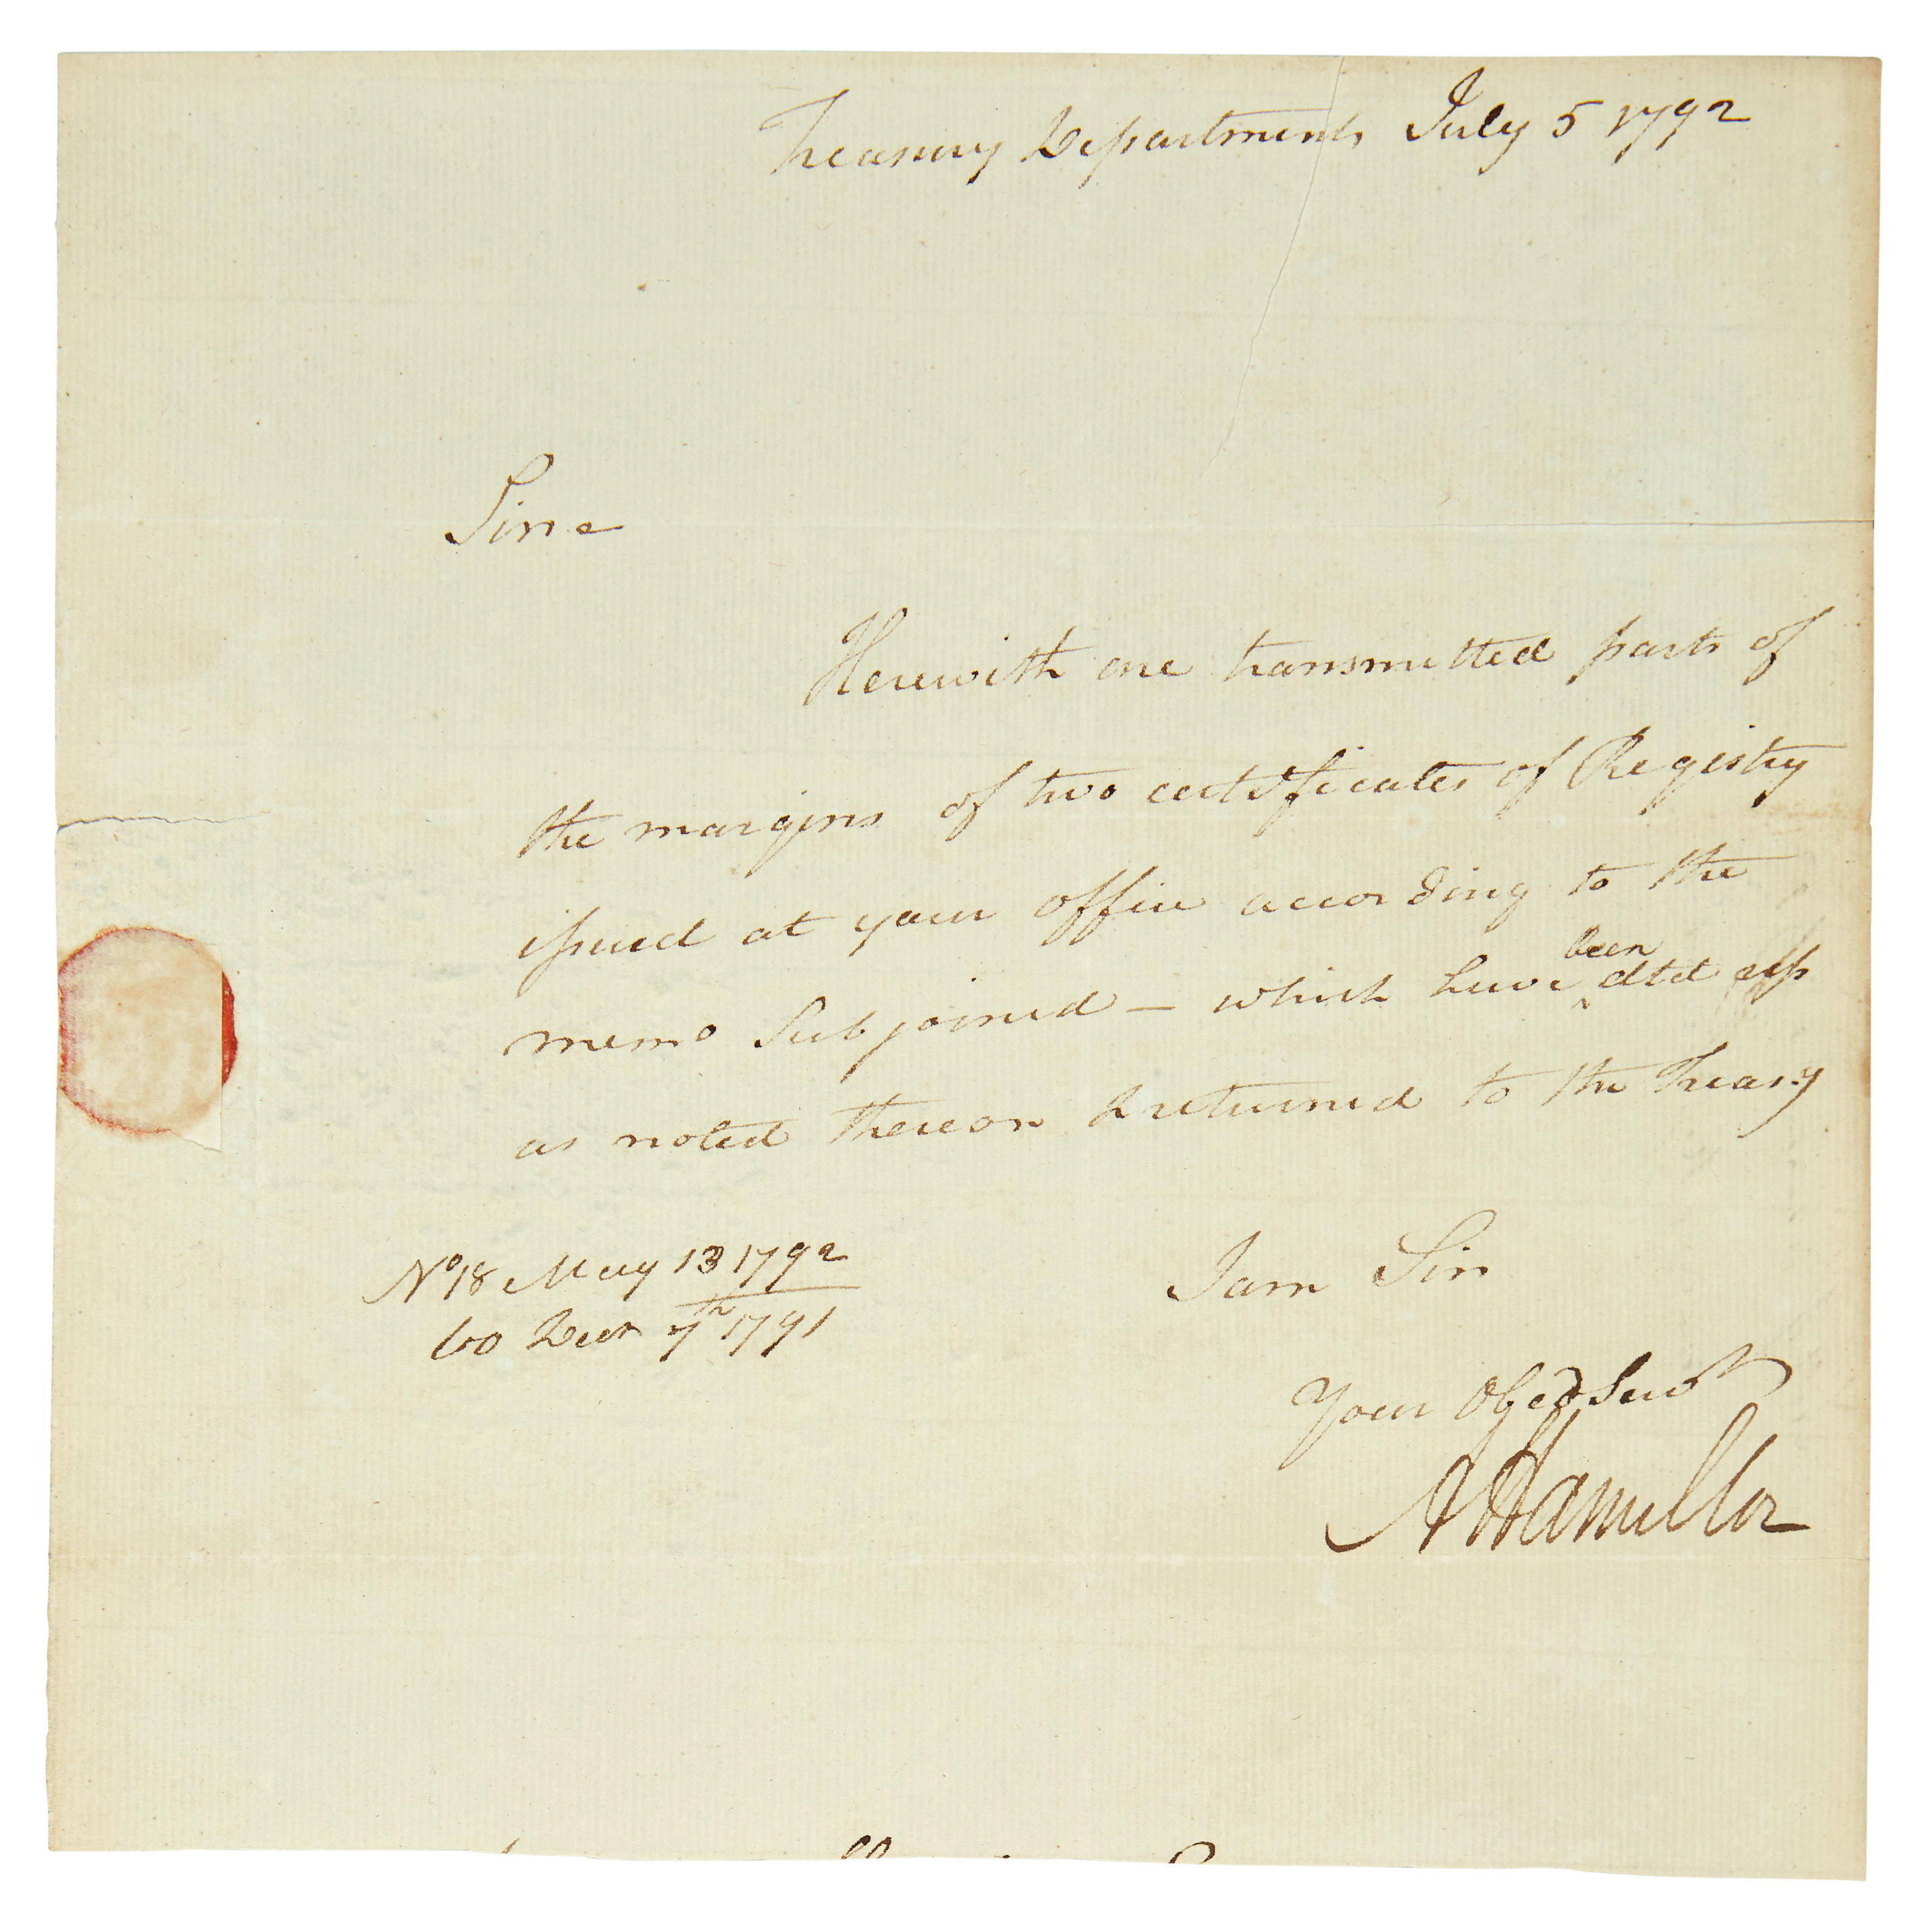 Treasury Department July 5 1792
Sir
Herewith are transmitted parts of
the margins of two certificates of Registry
issued at your office according to the
memo Subjoined — which have been
as noted thereon & returned to the Treasy
No 18 May 13 1792
60 Decr 7th 1791
I am Sir
Your Obed Servt
A Hamilton